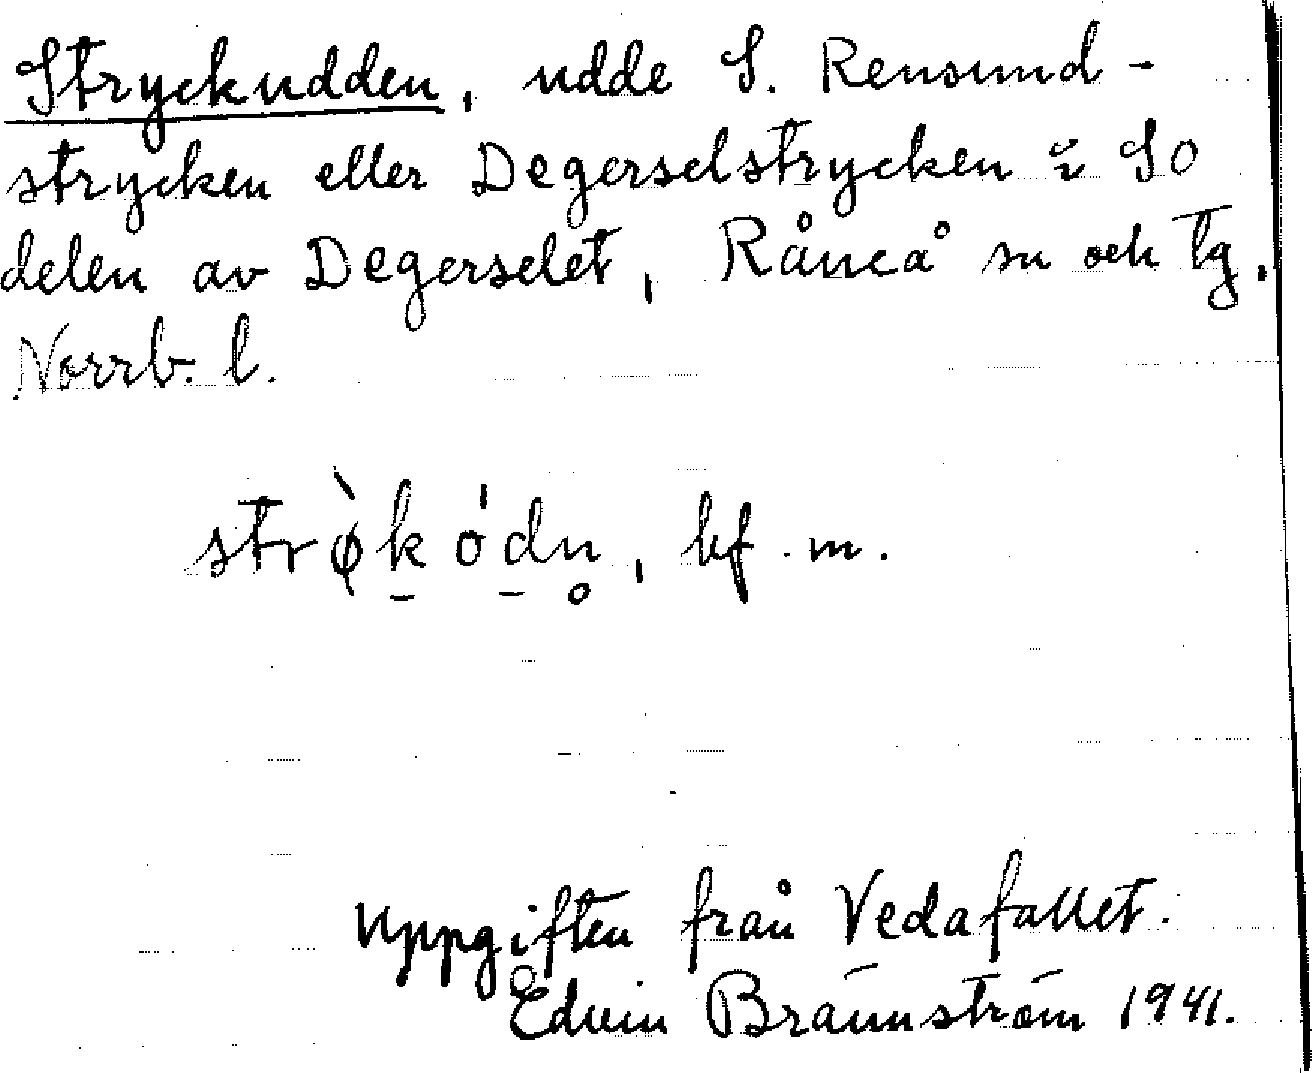 Stryckudden, udde S. Rensund-
strycken eller Degerselstrycken i SO
delen av Degerselet, Råneå sn och tg,
Norrb. l.
strø̀k ó̍dn̥, bf. m.
Uppgiften från Vedafallet.
Edvin Brännström 1941.